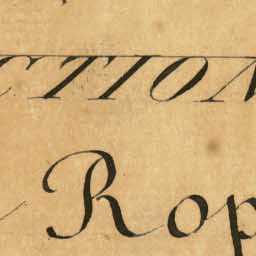 CTION
Rop